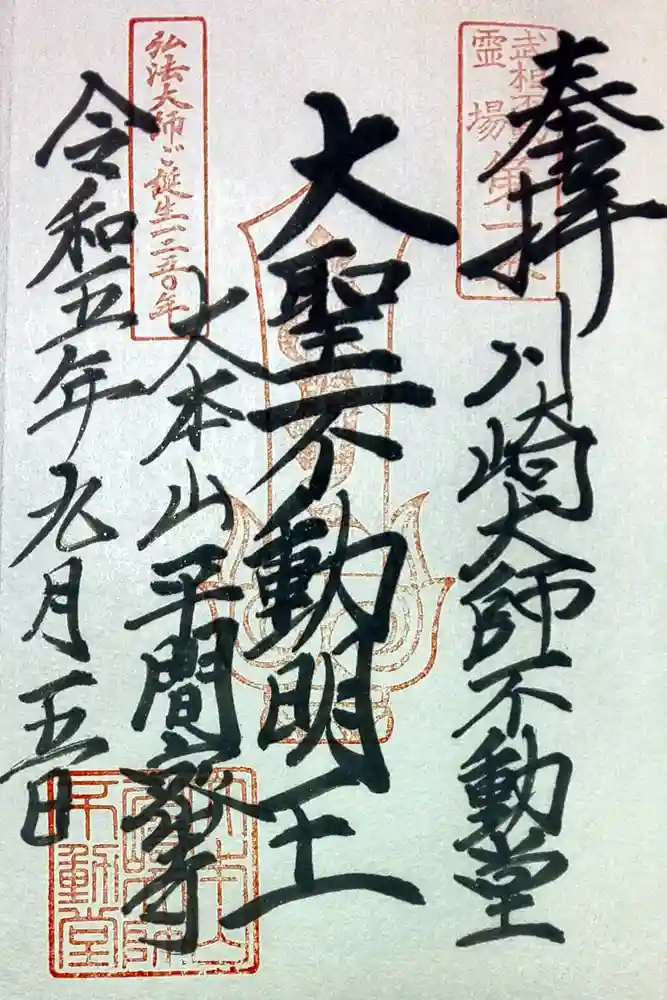 奉拝
川崎大師不動堂
大聖不動明王
大本山平間寺
令和五年九月一五日
弘法大師ご誕生一二五〇年
霊場第一番
不動堂